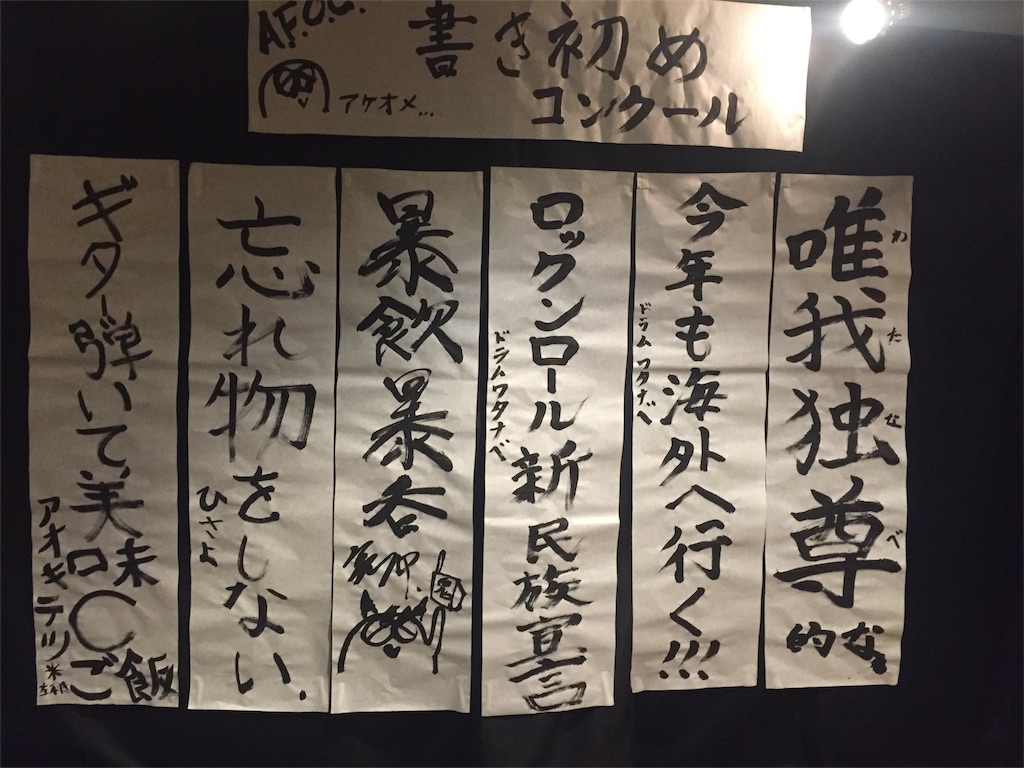 A.F.O.C.
書き初め
コンクール
アケオメ…
唯我独尊的な。
わたなべ
今年も海外へ行く!!!
ドラムワタナベ
ロックンロール新民族宣言
ドラムワタナベ
暴飲暴呑
忘れ物をしない.
ひさよ
ギター弾いて美味〇ご飯
アオキテツ